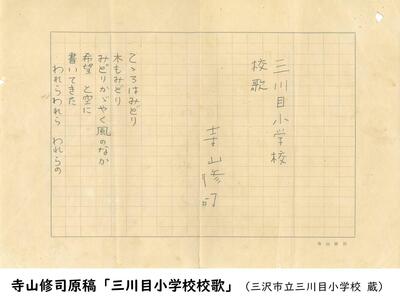 三川目小学校
校歌
寺山修司
こゝろはみどり
木もみどり
みどりかゞやく風のなか
希望 と空に
書いてきた
われらわれら われらの
寺山修司原稿「三川目小学校校歌」(三沢市立三川目小学校 蔵)